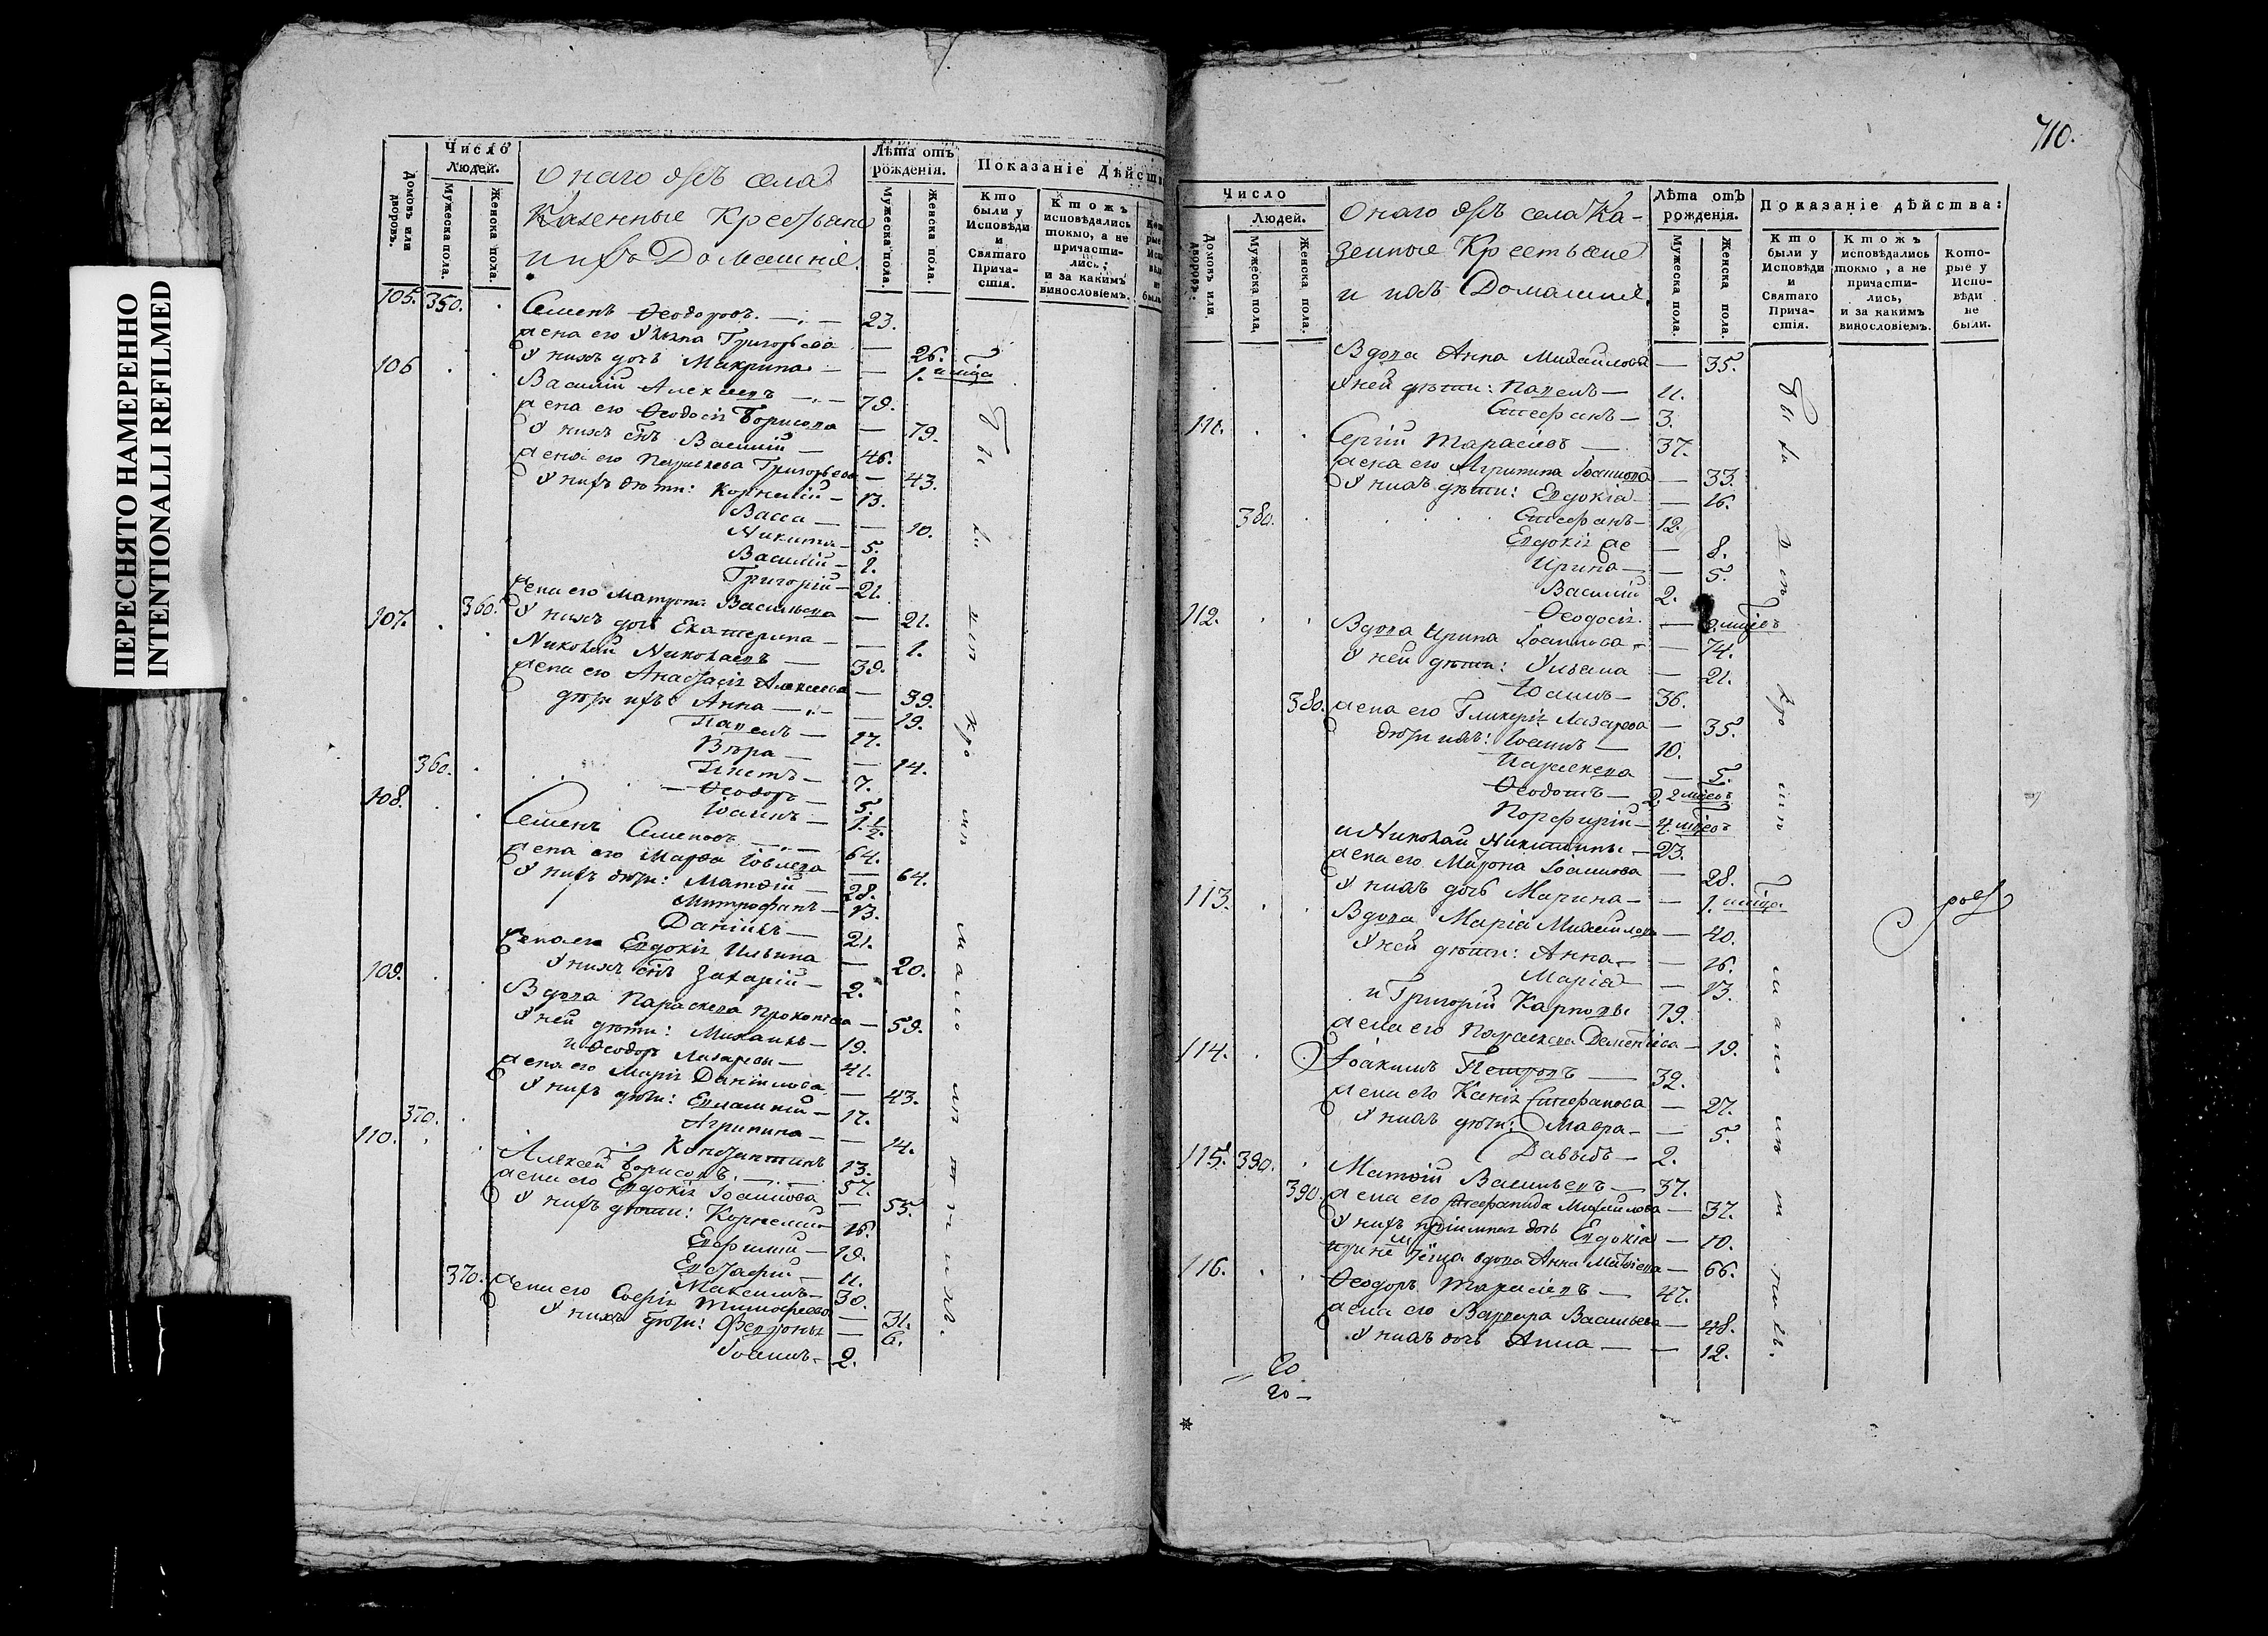 ПЕРЕСНЯТО НАМЕРЕННО
INTENTIONALLI REFILMED
Число
Людей.
Домовъ или дворовъ.
Мужеска пола.
Женска пола.
Онаго жъ села
Казенные Крестьяне
и ихъ Домашніе.
Лѣта отъ
рожденія.
Мужеска пола.
Женска пола.
Показаніе Дѣйств
Кто
были у
Исповѣди
и
Святаго
Прича-
стія.
Ктожъ
исповѣдались
токмо, а не
причасти-
лись;
и за какимъ
винословіемъ.
105. 350. Семенъ Ѳеодоровъ. 23.
жена его Ульяна Григорьева 26.
У нихъ дочь Макрина 1.
106 Василій Алексеевъ 79.
жена его Ѳеодосія Борисова 79.
У нихъ сынъ Василій 46.
жена его Параскева Григорьева 43.
У нихъ дѣти: Корнелій 13.
Васса 10.
Никита 5.
Василій 1.
Григорій 21.
360. жена его Матрона Васильева 21.
У нихъ дочь Екатерина 1.
107. Николай Николаевъ 39.
жена его Анастасія Алексеева 39.
дѣти ихъ Анна 19.
Павелъ 17.
Вѣра 14.
360. Игнатъ 7.
Ѳеодоръ 5.
Іоаннъ 1. 1/2.
108. Семенъ Семеновъ 64.
жена его Марѳа Іовлева 64.
У нихъ дѣти: Матѳій 28.
Митрофанъ 13.
Даніилъ 21.
жена его Евдокія Ильина 20.
У нихъ сынъ Захарій 2.
109. Вдова Параскева Прокопьева 59.
У ней дѣти: Михаилъ 19.
и Ѳеодоръ Лазаревы 41.
жена его Марія Даніилова 43.
У нихъ дѣти: Евлампій 17.
Агрипина 14.
370. Константинъ 13.
110. Алексей Борисовъ. 57.
жена его Евдокія Іоаннова 55.
У нихъ дѣти: Корнелій 16.
Евфимій 19.
Евстафій 11.
Максимъ 30.
370. жена его Софія Тимофеева 31.
У нихъ дѣти: Февронья 6.
Іоаннъ 2.
Были
у
них
кро
мѣ
мало
лѣтнихъ.
710.
Число
Людей.
Домовъ или дворовъ.
Мужеска пола,
Женска пола.
Онаго жъ села Ка-
зенные Крестьяне
и ихъ Домашніе.
Лѣта отъ
рожденія.
Мужеска пола.
Женска пола.
Показаніе дѣйства:
Кто
были у
Исповѣди
и
Святаго
Прича-
стія.
Ктожъ
исповѣдались
токмо, а не
причасти-
лись,
и за какимъ
винословіемъ.
Кото-
рые у
Испо-
вѣди
не
были.
Вдова Анна Михайлова 35.
У ней дѣти: Павелъ 11.
Стефанъ 3.
111. Сергій Тарасіевъ 37.
жена его Агрипина Іоаннова 33.
У нихъ дѣти: Евдокія 16.
380. Стефанъ 12.
Евдокія же 8.
Ирина 5.
Василій 2.
Ѳеодосія
112. Вдова Ирина Іоаннова 74.
У ней дѣти: Ульяна 21.
Іоаннъ 36.
380. жена его Гликерія Лазарева 35.
дѣти ихъ: Іоаннъ 10.
Параскева 5.
Ѳеодотъ 2.
Порфирій 4.
и Николай Никитины 23.
жена его Матрона Іоаннова 28.
У нихъ дочь Марина 1.
113. Вдова Марія Михайлова 40.
У ней дѣти: Анна 16.
Марія 13.
и Григорій Карповы 19.
жена его Параскева Дементіева 19.
114. Іоакимъ Петровъ 32.
жена его Ксенія Стефанова 27.
У нихъ дѣти: Мавра 5.
Давыдъ 2.
115. 390. Матѳій Васильевъ 37.
390. жена его Стефанида Михайлова 37.
У нихъ пріимная дочь Евдокія 10.
вдова Анна Матѳіева 66.
116. Ѳеодоръ Тарасіевъ 47.
жена его Варвара Васильева 48.
У нихъ дочь Анна 12.